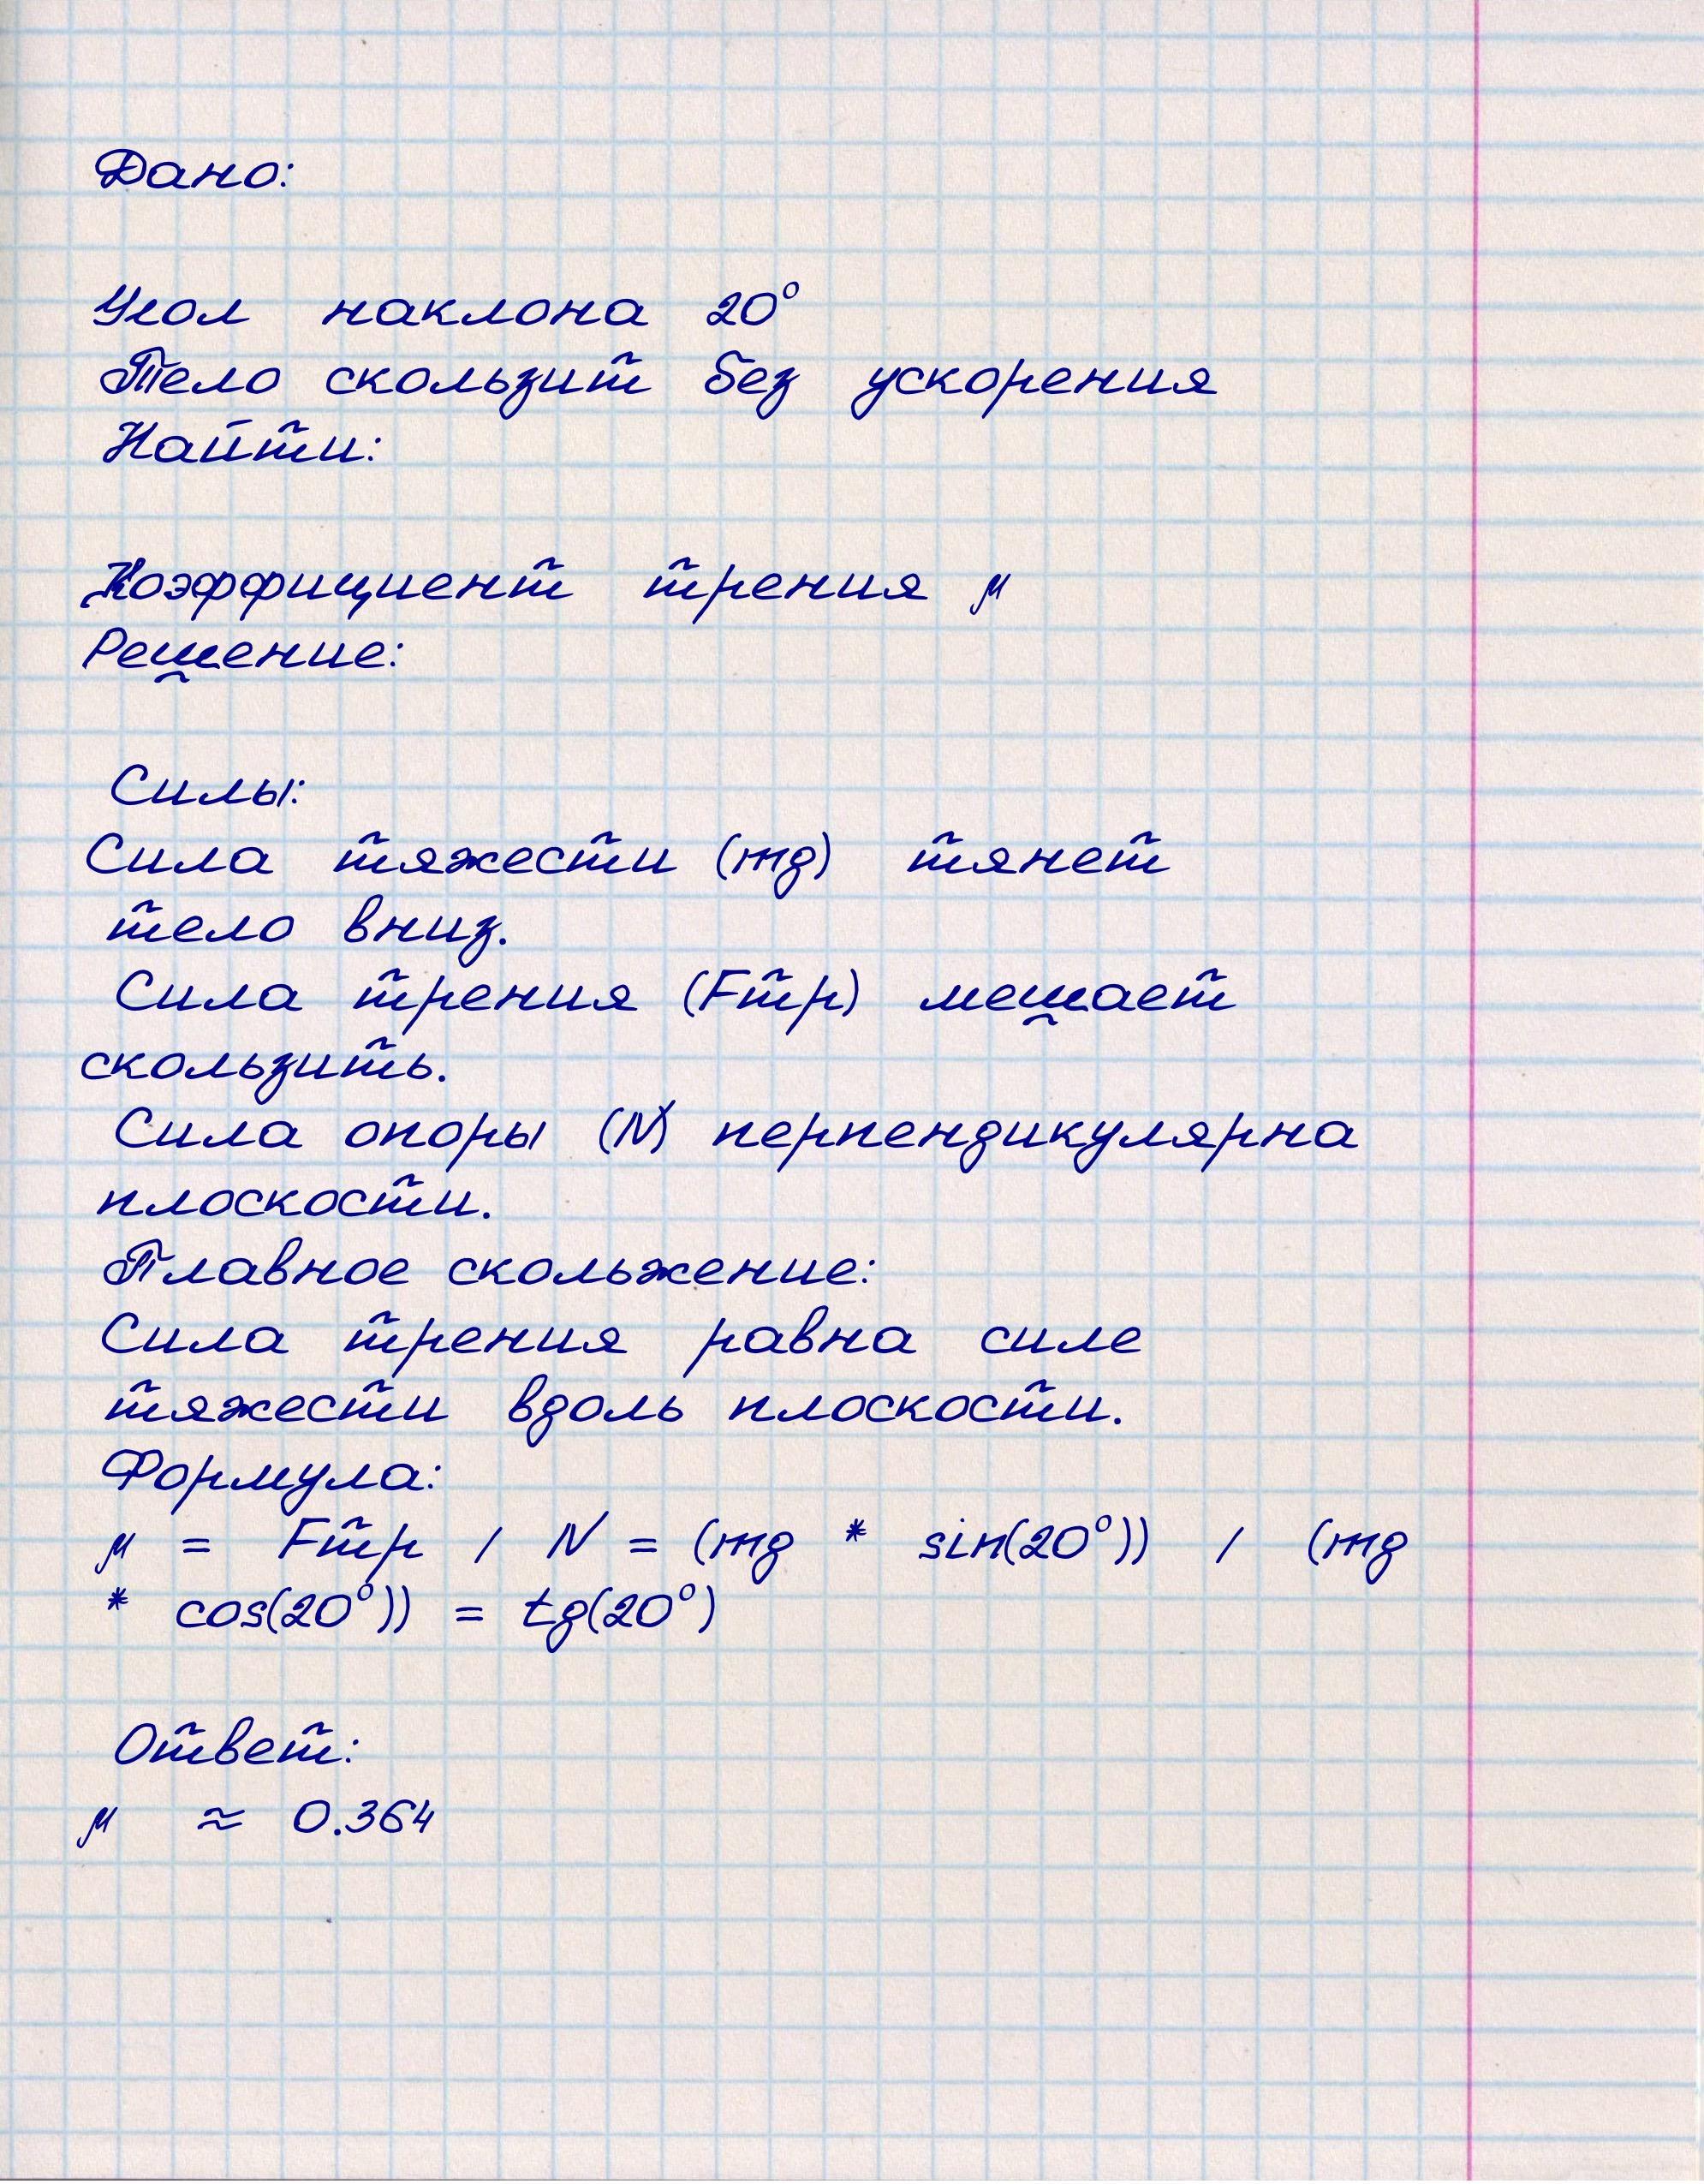 Дано:
Угол наклона 20°
Тело скользит без ускорения
Найти:
Коэффициент трения μ
Решение:
Силы:
Сила тяжести (mg) тянет
тело вниз.
Сила трения (Fтр) мешает
скользить.
Сила опоры (N) перпендикулярна
плоскости.
Плавное скольжение:
Сила трения равна силе
тяжести вдоль плоскости.
Формула:
μ = Fтр / N = (mg * sin(20°)) / (mg
* cos(20°)) = tg(20°)
Ответ:
μ ≈ 0.364